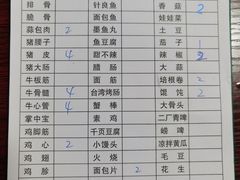 排骨 针良鱼 香菇 2
脆骨 面包鱼 娃娃菜
蒜包肉 2 墨鱼丸 土豆
猪腰子 鱼豆腐 茄子 1
猪皮 4 甜不辣 辣椒 2
猪大肠 面筋 蒜
牛板筋 面筋 培根卷 2
牛骨髓 4 台湾烤肠 馄饨 2
牛心管 4 蟹棒 大骨头
掌中宝 素鸡 二厂青啤
鸡脚筋 千页豆腐 崂啤
鸡心 2 小馒头 凉拌黄瓜
鸡翅 火烧 毛豆
鸡胗 面包片 2 花生